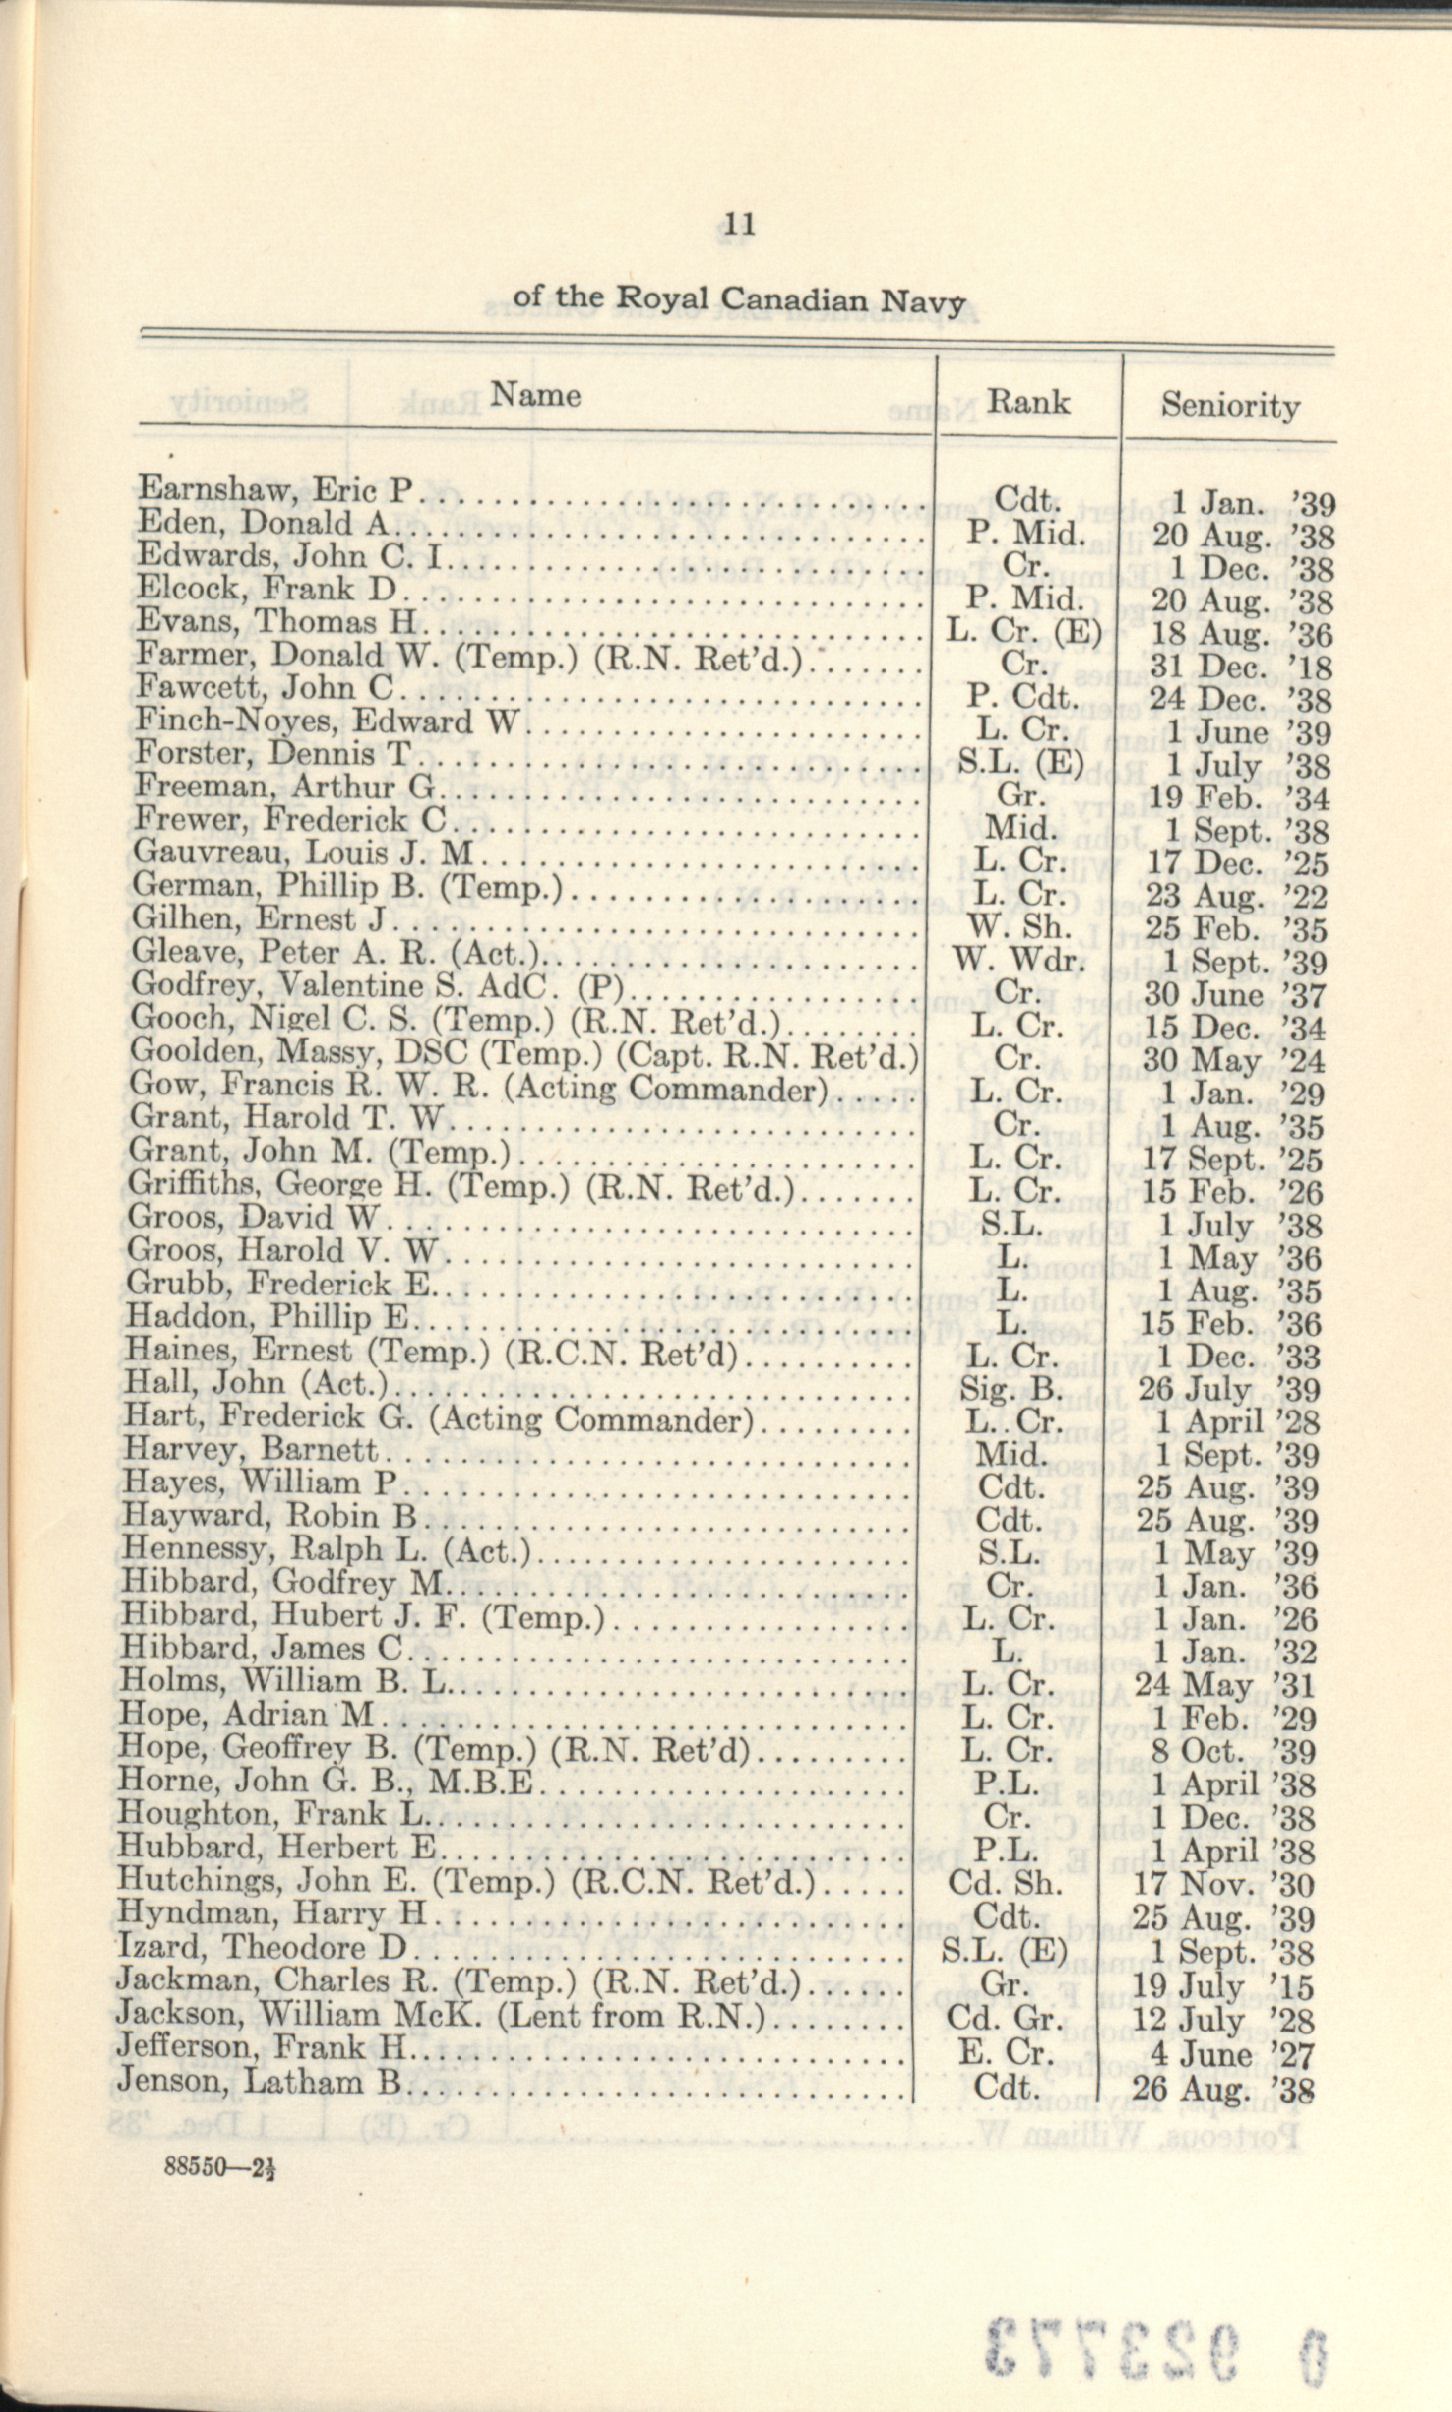 11
of the Royal Canadian Navy
Name Rank Seniority
Earnshaw, Eric P. Cdt. 1 Jan. ’39
Eden, Donald A. P. Mid. 20 Aug. ’38
Edwards, John C. I. Cr. 1 Dec. ’38
Elcock, Frank D. P. Mid. 20 Aug. ’38
Evans, Thomas H. L. Cr. (E) 18 Aug. ’36
Farmer, Donald W. (Temp.) (R.N. Ret’d.) Cr. 31 Dec. ’18
Fawcett, John C. P. Cdt. 24 Dec. ’38
Finch-Noyes, Edward W. L. Cr. 1 June ’39
Forster, Dennis T. S.L. (E) 1 July ’38
Freeman, Arthur G. Gr. 19 Feb. ’34
Frewer, Frederick C. Mid. 1 Sept. ’38
Gauvreau, Louis J. M. L. Cr. 17 Dec. ’25
German, Phillip B. (Temp.) L. Cr. 23 Aug. ’22
Gilhen, Ernest J. W. Sh. 25 Feb. ’35
Gleave, Peter A. R. (Act.) W. Wdr. 1 Sept. ’39
Godfrey, Valentine S. AdC. (P) Cr. 30 June ’37
Gooch, Nigel C. S. (Temp.) (R.N. Ret’d.) L. Cr. 15 Dec. ’34
Goolden, Massy, DSC (Temp.) (Capt. R.N. Ret’d.) Cr. 30 May ’24
Gow, Francis R. W. R. (Acting Commander) L. Cr. 1 Jan. ’29
Grant, Harold T. W. Cr. 1 Aug. ’35
Grant, John M. (Temp.) L. Cr. 17 Sept. ’25
Griffiths, George H. (Temp.) (R.N. Ret’d.) L. Cr. 15 Feb. ’26
Groos, David W. S.L. 1 July ’38
Groos, Harold V. W. L. 1 May ’36
Grubb, Frederick E. L. 1 Aug. ’35
Haddon, Phillip E. L. 15 Feb. ’36
Haines, Ernest (Temp.) (R.C.N. Ret’d) L. Cr. 1 Dec. ’33
Hall, John (Act.) Sig. B. 26 July ’39
Hart, Frederick G. (Acting Commander) L. Cr. 1 April ’28
Harvey, Barnett Mid. 1 Sept. ’39
Hayes, William P. Cdt. 25 Aug. ’39
Hayward, Robin B. Cdt. 25 Aug. ’39
Hennessy, Ralph L. (Act.) S.L. 1 May ’39
Hibbard, Godfrey M. Cr. 1 Jan. ’36
Hibbard, Hubert J. F. (Temp.) L. Cr. 1 Jan. ’26
Hibbard, James C. L. 1 Jan. ’32
Holms, William B. L. L. Cr. 24 May ’31
Hope, Adrian M. L. Cr. 1 Feb. ’29
Hope, Geoffrey B. (Temp.) (R.N. Ret’d) L. Cr. 8 Oct. ’39
Horne, John G. B., M.B.E. P.L. 1 April ’38
Houghton, Frank L. Cr. 1 Dec. ’38
Hubbard, Herbert E. P.L. 1 April ’38
Hutchings, John E. (Temp.) (R.C.N. Ret’d.) Cd. Sh. 17 Nov. ’30
Hyndman, Harry H. Cdt. 25 Aug. ’39
Izard, Theodore D. S.L. (E) 1 Sept. ’38
Jackman, Charles R. (Temp.) (R.N. Ret’d.) Gr. 19 July ’15
Jackson, William McK. (Lent from R.N.) Cd. Gr. 12 July ’28
Jefferson, Frank H. E. Cr. 4 June ’27
Jenson, Latham B. Cdt. 26 Aug. ’38
88550—2½
0 923773